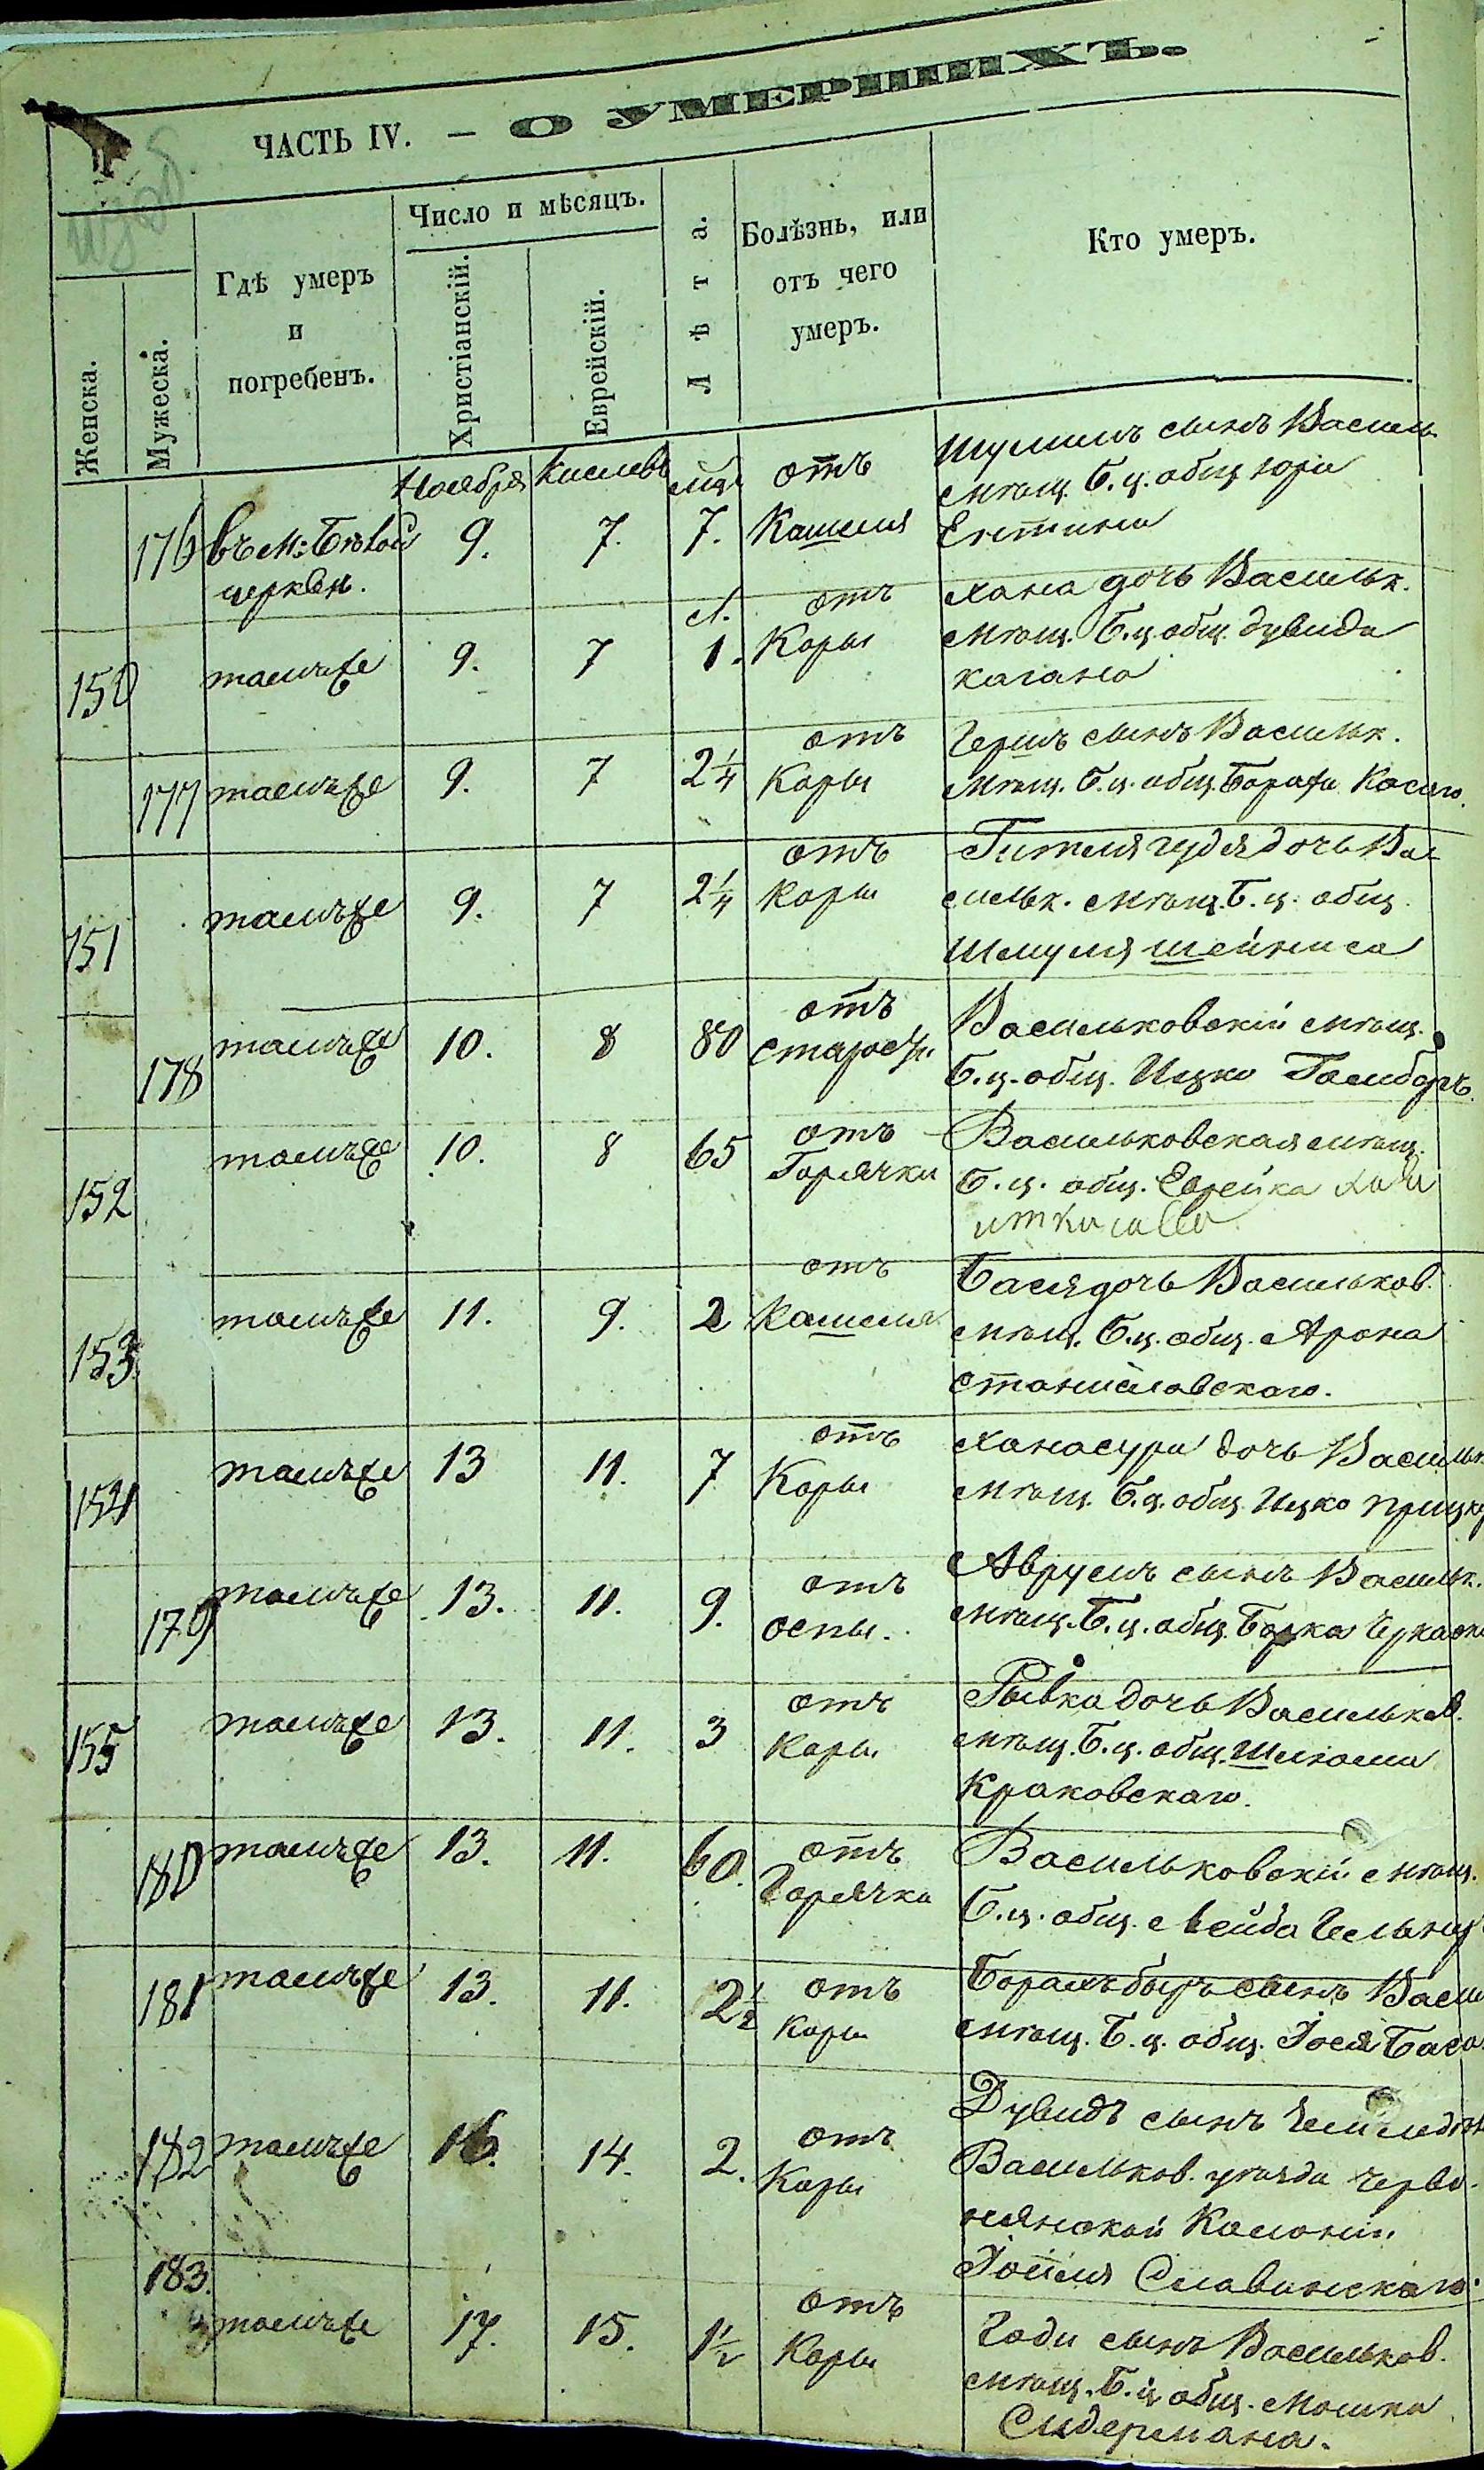 ЧАСТЬ IV. — О УМЕРШИХЪ.
Женска.
Мужеска.
Гдѣ умеръ
и
погребенъ.
Число и мѣсяцъ.
Христіанскій.
Еврейскій.
Лѣта.
Болѣзнь, или
отъ чего
умеръ.
Кто умеръ.
Ноября Кислевъ
176 въ м: Бѣлой 9. 7. 7. отъ Кашеля
церкви.
сынъ Василь
мѣщ. Б. ц. общ. Юри
150 тамъже 9. 7 1. отъ Коры
Хана дочь Васильк.
мѣщ. Б. ц. общ. Дувида
Кагана
177 тамъже 9. 7 2 1/4 отъ Коры
Гершъ сынъ Васильк.
мѣщ. Б. ц. общ. Бороха
151 тамъже 9. 7 2 1/4 отъ Коры
Гителя гудя дочь Ва
сильк. мѣщ. Б. ц. общ.
Шмуля Шейниса
178 тамъже 10. 8 80 отъ Старости
Васильковскій мѣщ.
Б. ц. общ. Ицко
152 тамъже 10. 8 65 отъ Горячки
Васильковская мѣщ.
Б. ц. общ. Еврейка
153 тамъже 11. 9. 2 отъ Кашеля
Бася дочь Васильков.
мѣщ. Б. ц. общ. Арона
Станиславскаго.
154 тамъже 13 11. 7 отъ Коры
Ханасура дочь Васильк
мѣщ. Б. ц. общ. Ицко
179 тамъже 13. 11. 9. отъ оспы.
Аврумъ сынъ Васильк.
мѣщ. Б. ц. общ. Борка
155 тамъже 13. 11. 3 отъ Коры
Рывка дочь Васильков.
мѣщ. Б. ц. общ. Шлюмы
Краковскаго.
180 тамъже 13. 11. 60. отъ Горячки
Васильковскій мѣщ.
Б. ц. общ. Лейба
181 тамъже 13. 11. 2 1/2 отъ Коры
сынъ Васи
мѣщ. Б. ц. общ. Іося
182 тамъже 16. 14. 2. отъ Коры
Дувидъ сынъ
Васильков. уѣзда Черво-
нянской Колоніи
Славинскаго.
183. тамъже 17. 15. 1 1/2 отъ Коры
сынъ Васильков.
мѣщ. Б. ц. общ. Мошка
Сидермана.